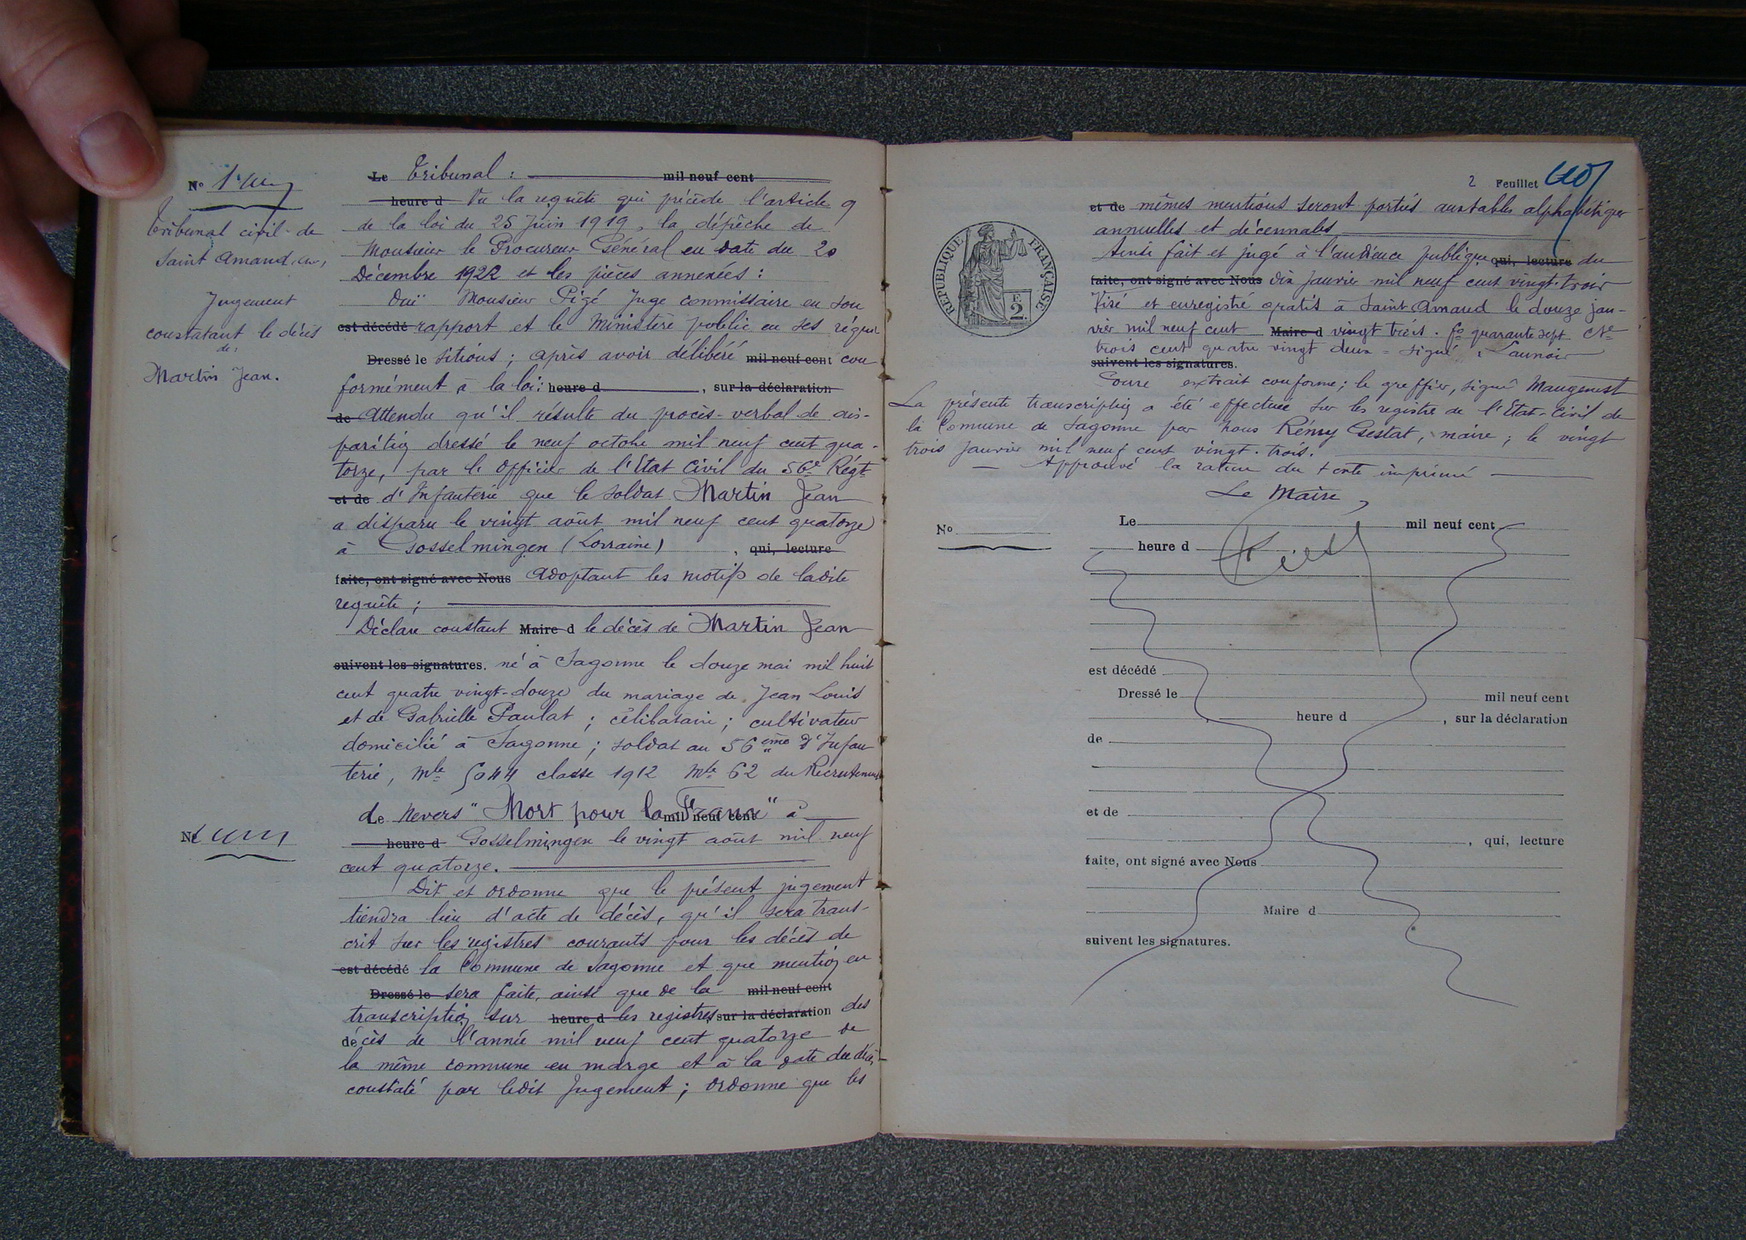 N° 1er
Tribunal civil de
Saint Amand
Jugement
constatant le décès
de
Martin Jean.
Le Tribunal : mil neuf cent
heure d Vu la requête qui précède l'article 9
de la loi du 25 Juin 1919, la dépêche de
Monsieur le Procureur Général en date du 20
Décembre 1922 et les pièces annexées :
Ouï Monsieur Pigé Juge commissaire en son
est décédé rapport et le Ministère public en ses réqui
Dressé le sitions ; après avoir délibéré mil neuf cent con
formément à la loi : heure d , sur la déclaration
de Attendu qu'il résulte du procès-verbal de dis-
parition dressé le neuf octobre mil neuf cent qua-
torze, par l'Officier de l'Etat Civil du 56e Régt
et de d'Infanterie que le soldat Martin Jean
a disparu le vingt août mil neuf cent quatorze
à Gosselmingen (Lorraine) , qui, lecture
faite, ont signé avec Nous Adoptant les motifs de ladite
requête ;
Déclare constant Maire d le décès de Martin Jean
suivent les signatures. né à Sagonne le douze mai mil huit
cent quatre vingt-douze du mariage de Jean Louis
et de Gabrielle Paulat ; célibataire ; cultivateur
domicilié à Sagonne ; soldat au 56ème d'Infan
terie, Mle 5044 classe 1912 Mle 62 du Recrutement
Le de Nevers "Mort pour la France" à mil neuf cent
heure d Gosselmingen le vingt août mil neuf
cent quatorze.
Dit et ordonne que le présent jugement
tiendra lieu d'acte de décès, qu'il sera trans-
crit sur les registres courants pour les décès de
est décédé la Commune de Sagonne et que mention en
Dressé le sera faite, ainsi que de la mil neuf cent
transcription sur heure d les registres sur la déclaration des
décès de l'année mil neuf cent quatorze de
la même commune en marge et à la date du décès
constaté par ledit Jugement ; ordonne que les
N°
2 Feuillet
RÉPUBLIQUE FRANÇAISE
2
et de mêmes mentions seront portées aux tables alphabétiques
annuelles et décennales
Ainsi fait et jugé à l'audience publique qui, lecture du
faite, ont signé avec Nous dix janvier mil neuf cent vingt-trois
Visé et enregistré gratis à Saint Amand le douze jan-
vier mil neuf cent Maire d vingt trois. Fo quarante sept Cse
trois cent quatre vingt deux = signé : Launoir
suivent les signatures.
Pour extrait conforme ; le greffier, signé Maugenest
La présente transcription a été effectuée sur les registre de l'Etat-Civil de
la Commune de Sagonne par nous Rémy Gestat, maire ; le vingt
trois Janvier mil neuf cent vingt-trois.
Approuvé la rature du texte imprimé
Le Maire,
N°
Le mil neuf cent
heure d
est décédé
Dressé le mil neuf cent
heure d , sur la déclaration
de
et de
, qui, lecture
faite, ont signé avec Nous
Maire d
suivent les signatures.